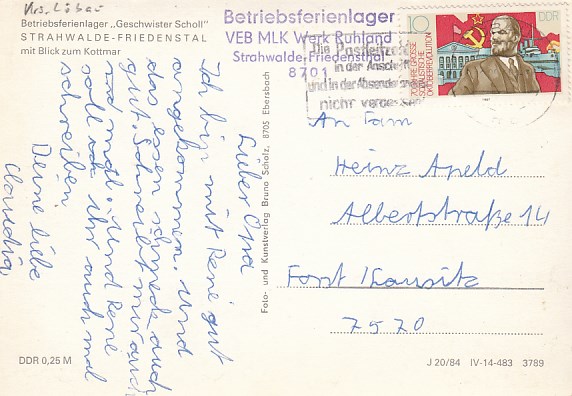 Krs. Löbau
Betriebsferienlager „Geschwister Scholl"
STRAHWALDE-FRIEDENSTAL
mit Blick zum Kottmar
Betriebsferienlager
VEB MLK Werk Ruhland
Strahwalde-Friedensthal
8701
Die Postleitzahl
in der Anschrift
und in der Absenderangabe
nicht vergessen
10
DDR
70 JAHRE GROSSE
SOZIALISTISCHE
OKTOBERREVOLUTION
Lieber Opa
Ich bin mit René gut
angekommen. und
das essen schmeckt auch
gut. Schreibt mir auch
mal. und René
soll ich ihr auch mal
schreiben
Deine liebe
Claudia
Foto- und Kunstverlag Bruno Scholz, 8705 Ebersbach
An Fam
Heinz Apeld
Albertstraße 14
Forst Lausitz
7570
DDR 0,25 M
J 20/84 IV-14-483 3789